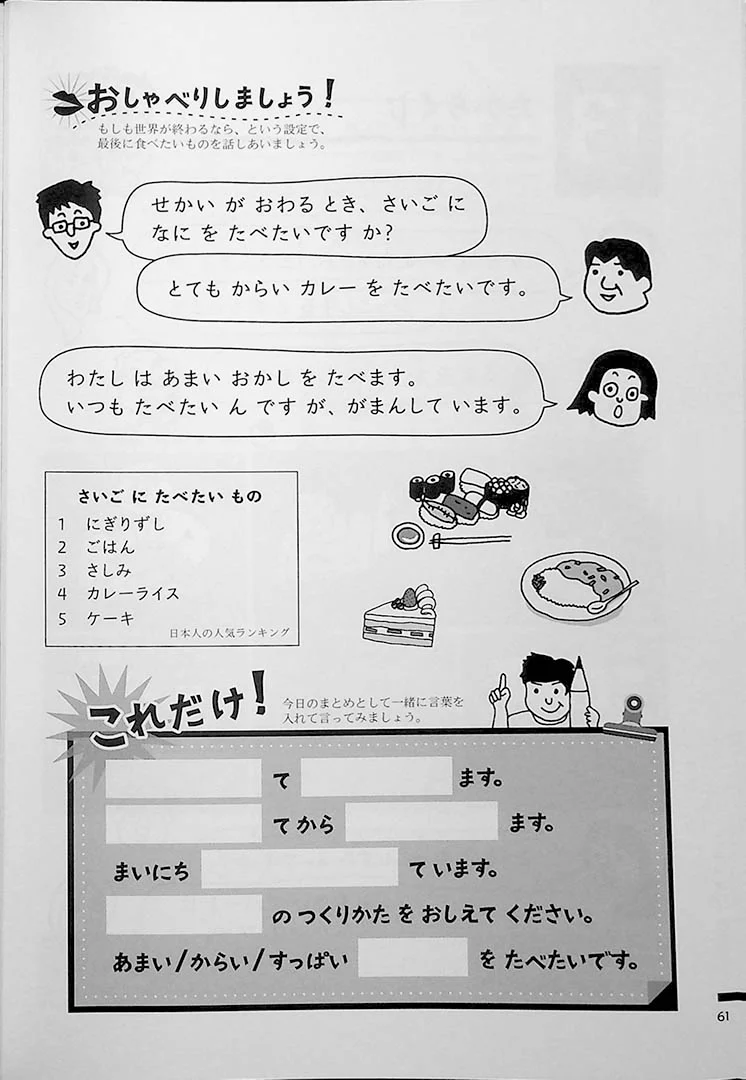 おしゃべりしましょう!
もしも世界が終わるなら、という設定で、
最後に食べたいものを話しあいましょう。
せかい が おわる とき、さいご に
なに を たべたいです か?
とても からい カレー を たべたいです。
わたし は あまい おかし を たべます。
いつも たべたい ん です が、がまんして います。
さいご に たべたい もの
1 にぎりずし
2 ごはん
3 さしみ
4 カレーライス
5 ケーキ
日本人の人気ランキング
これだけ!
今日のまとめとして一緒に言葉を
入れて言ってみましょう。
て ます。
て から ます。
まいにち て います。
の つくりかた を おしえて ください。
あまい/からい/すっぱい を たべたいです。
61